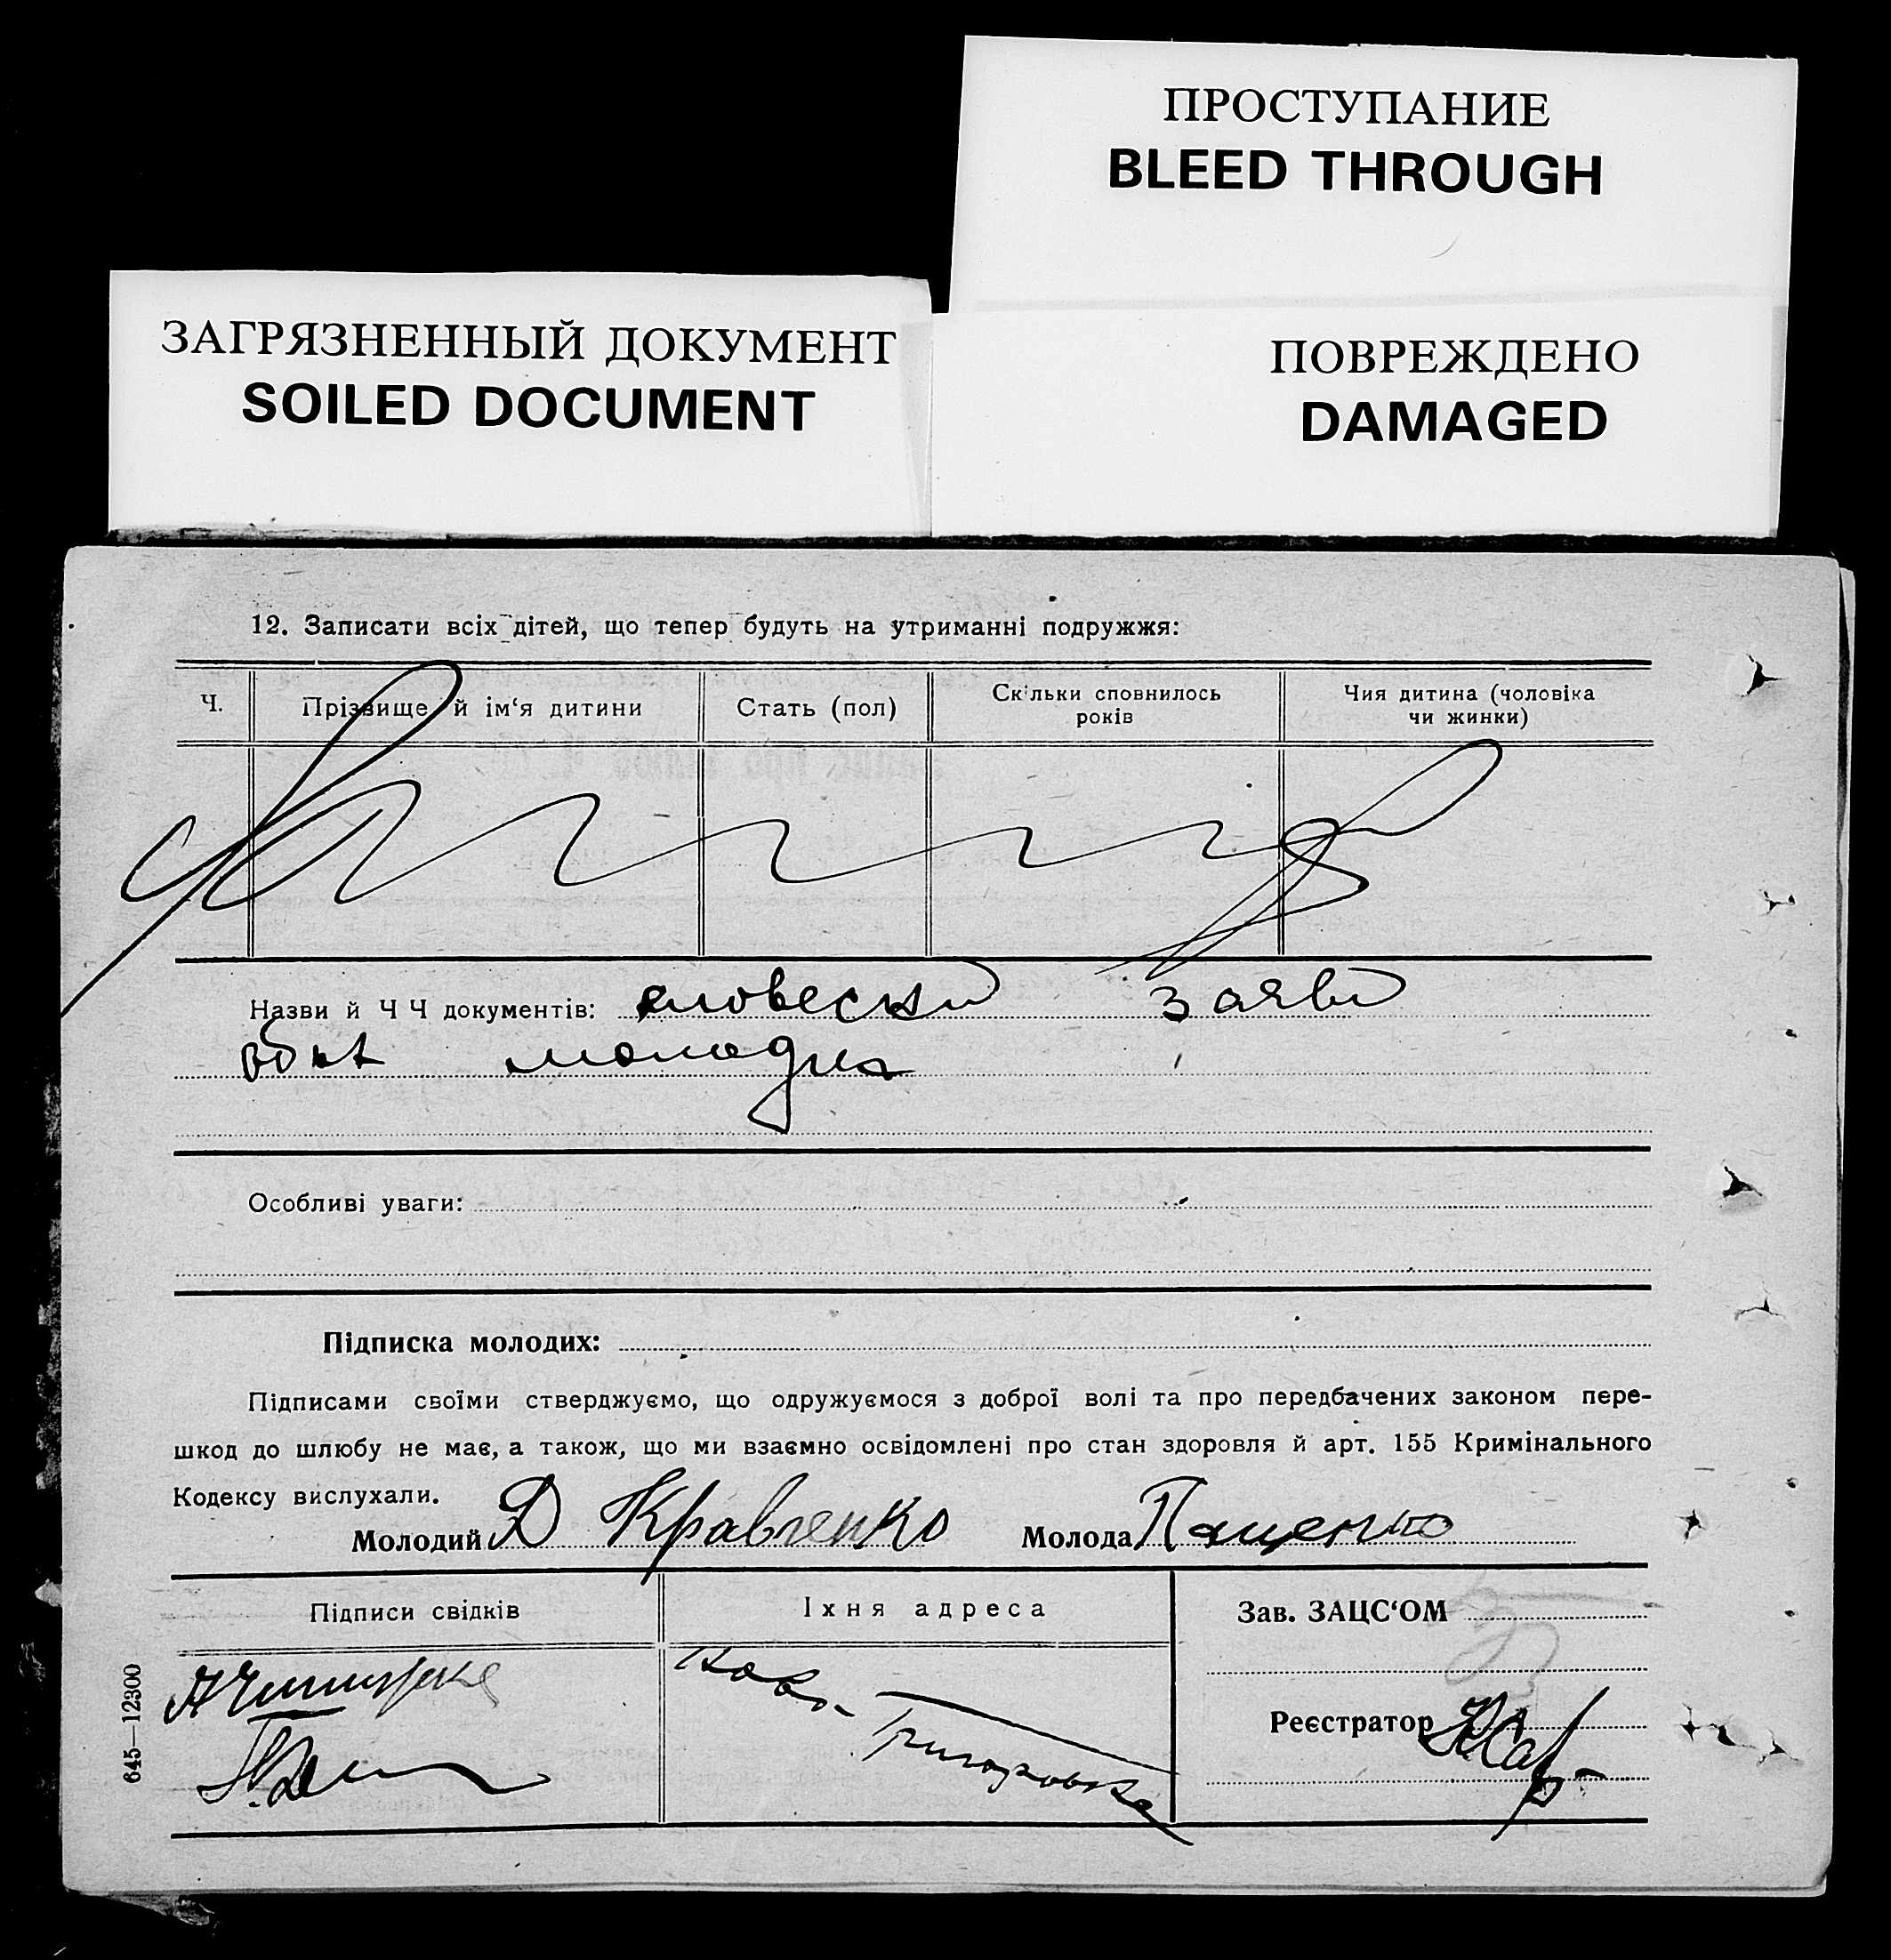 ПРОСТУПАНИЕ
BLEED THROUGH
ЗАГРЯЗНЕННЫЙ ДОКУМЕНТ
SOILED DOCUMENT
ПОВРЕЖДЕНО
DAMAGED
12. Записати всіх дітей, що тепер будуть на утриманні подружжя:
Ч. Прізвище й ім‘я дитини Стать (пол) Скільки сповнилось років Чия дитина (чоловіка чи жинки)
Назви й Ч Ч документів: словесни заяви
обох молодих
Особливі уваги:
Підписка молодих:
Підписами своїми стверджуємо, що одружуємося з доброї волі та про передбачених законом пере-
шкод до шлюбу не має, а також, що ми взаємно освідомлені про стан здоровля й арт. 155 Кримінального
Кодексу вислухали.
Молодий Д Кравченко Молода Пащенко
Підписи свідків Їхня адреса Зав. ЗАЦС‘ОМ
Ново-
Григоровка
Реєстратор
645—12300